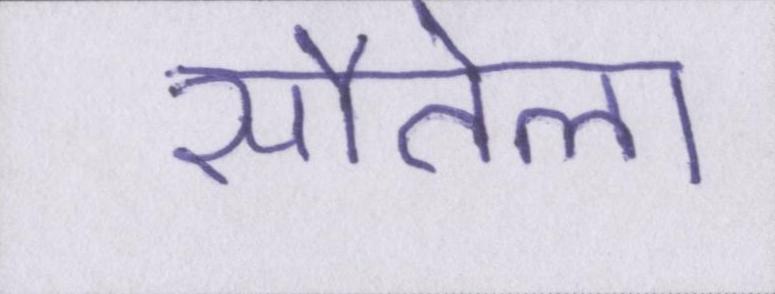 सौतेला